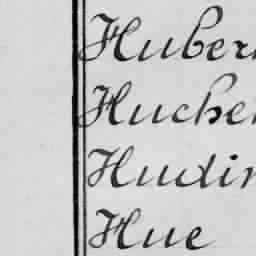 Huber
Huche
Hudin
Hue